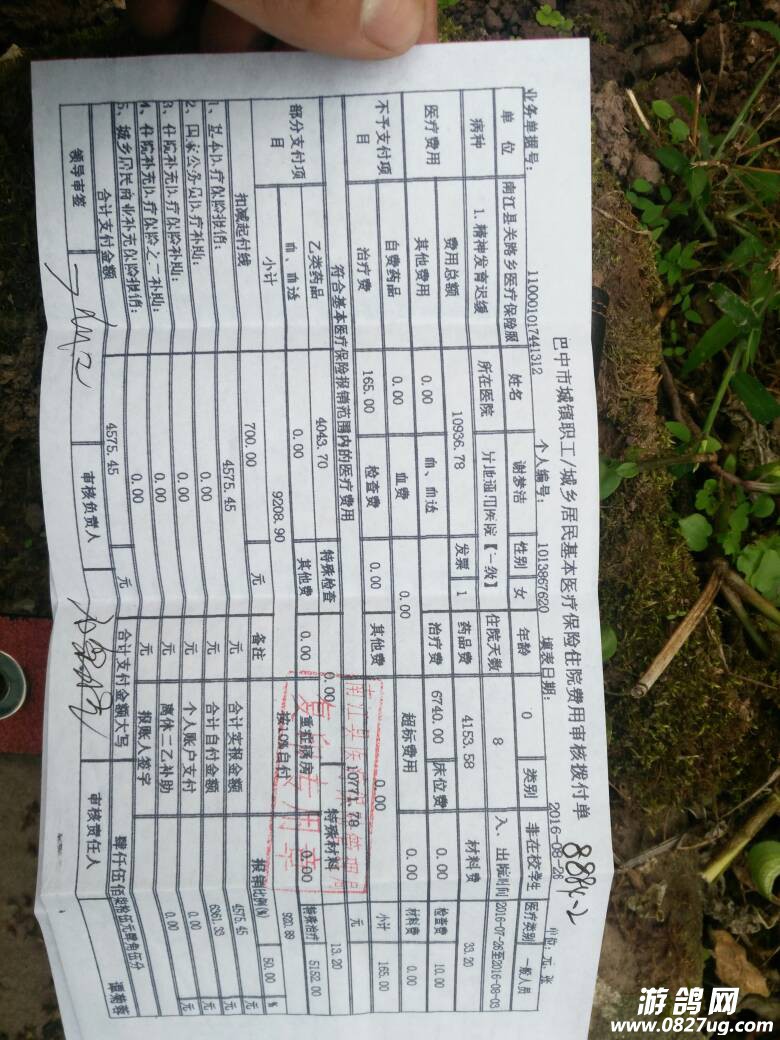 巴中市城镇职工/城乡居民基本医疗保险住院费用审核拨付单
8884-2
业务单据号: 110001017441312 个人编号: 1013867620 填表日期: 2016-08-26 单位: 元、张
单位 南江县关路乡医疗保险服 姓名 谢梦洁 性别 女 年龄 0 类别 非在校学生 医疗类别 一般人员
病种 1.精神发育迟缓 所在医院 异地通用医院【一级】 住院天数 8 入、出院时间 2016-07-26至2016-08-03
医疗费用 费用总额 10936.78 发票 1 药品费 4153.58 材料费 33.20 检查费 10.00
其他费用 0.00 血、血透 0.00 治疗费 6740.00 床位费 0.00 材料费 0.00
不予支付项目 自费药品 0.00 血费 超标费用 0.00 小计 165.00
治疗费 165.00 检查费 0.00 其他费 0.00
符合基本医疗保险报销范围内的医疗费用 10771.78 元
部分支付项目 乙类药品 4043.70 特殊检查 0.00 特殊材料 13.20 特殊治疗 5152.00
血、血透 0.00 其他费 0.00 重症病房 0.00
小计 9208.90 按10%自付 920.89
扣减起付线 700.00 元 备注 报销比例(%) 50.00 %
1、基本医疗保险报销: 4575.45 元 合计实报金额 4575.45 元
2、国家公务员医疗补助: 0.00 元 合计自付金额 6361.33 元
3、住院补充医疗保险补助: 0.00 元 个人账户支付 0.00 元
4、住院补充医疗保险之二补助: 0.00 元 离休二乙补助 0.00 元
5、城乡居民商业补充保险报销: 0.00 元 报账人签字
合计支付金额 4575.45 元 合计支付金额大写 肆仟伍佰柒拾伍元肆角伍分
领导审签 审核负责人 审核责任人 谭菊蓉
游鸽网
www.0827ug.com